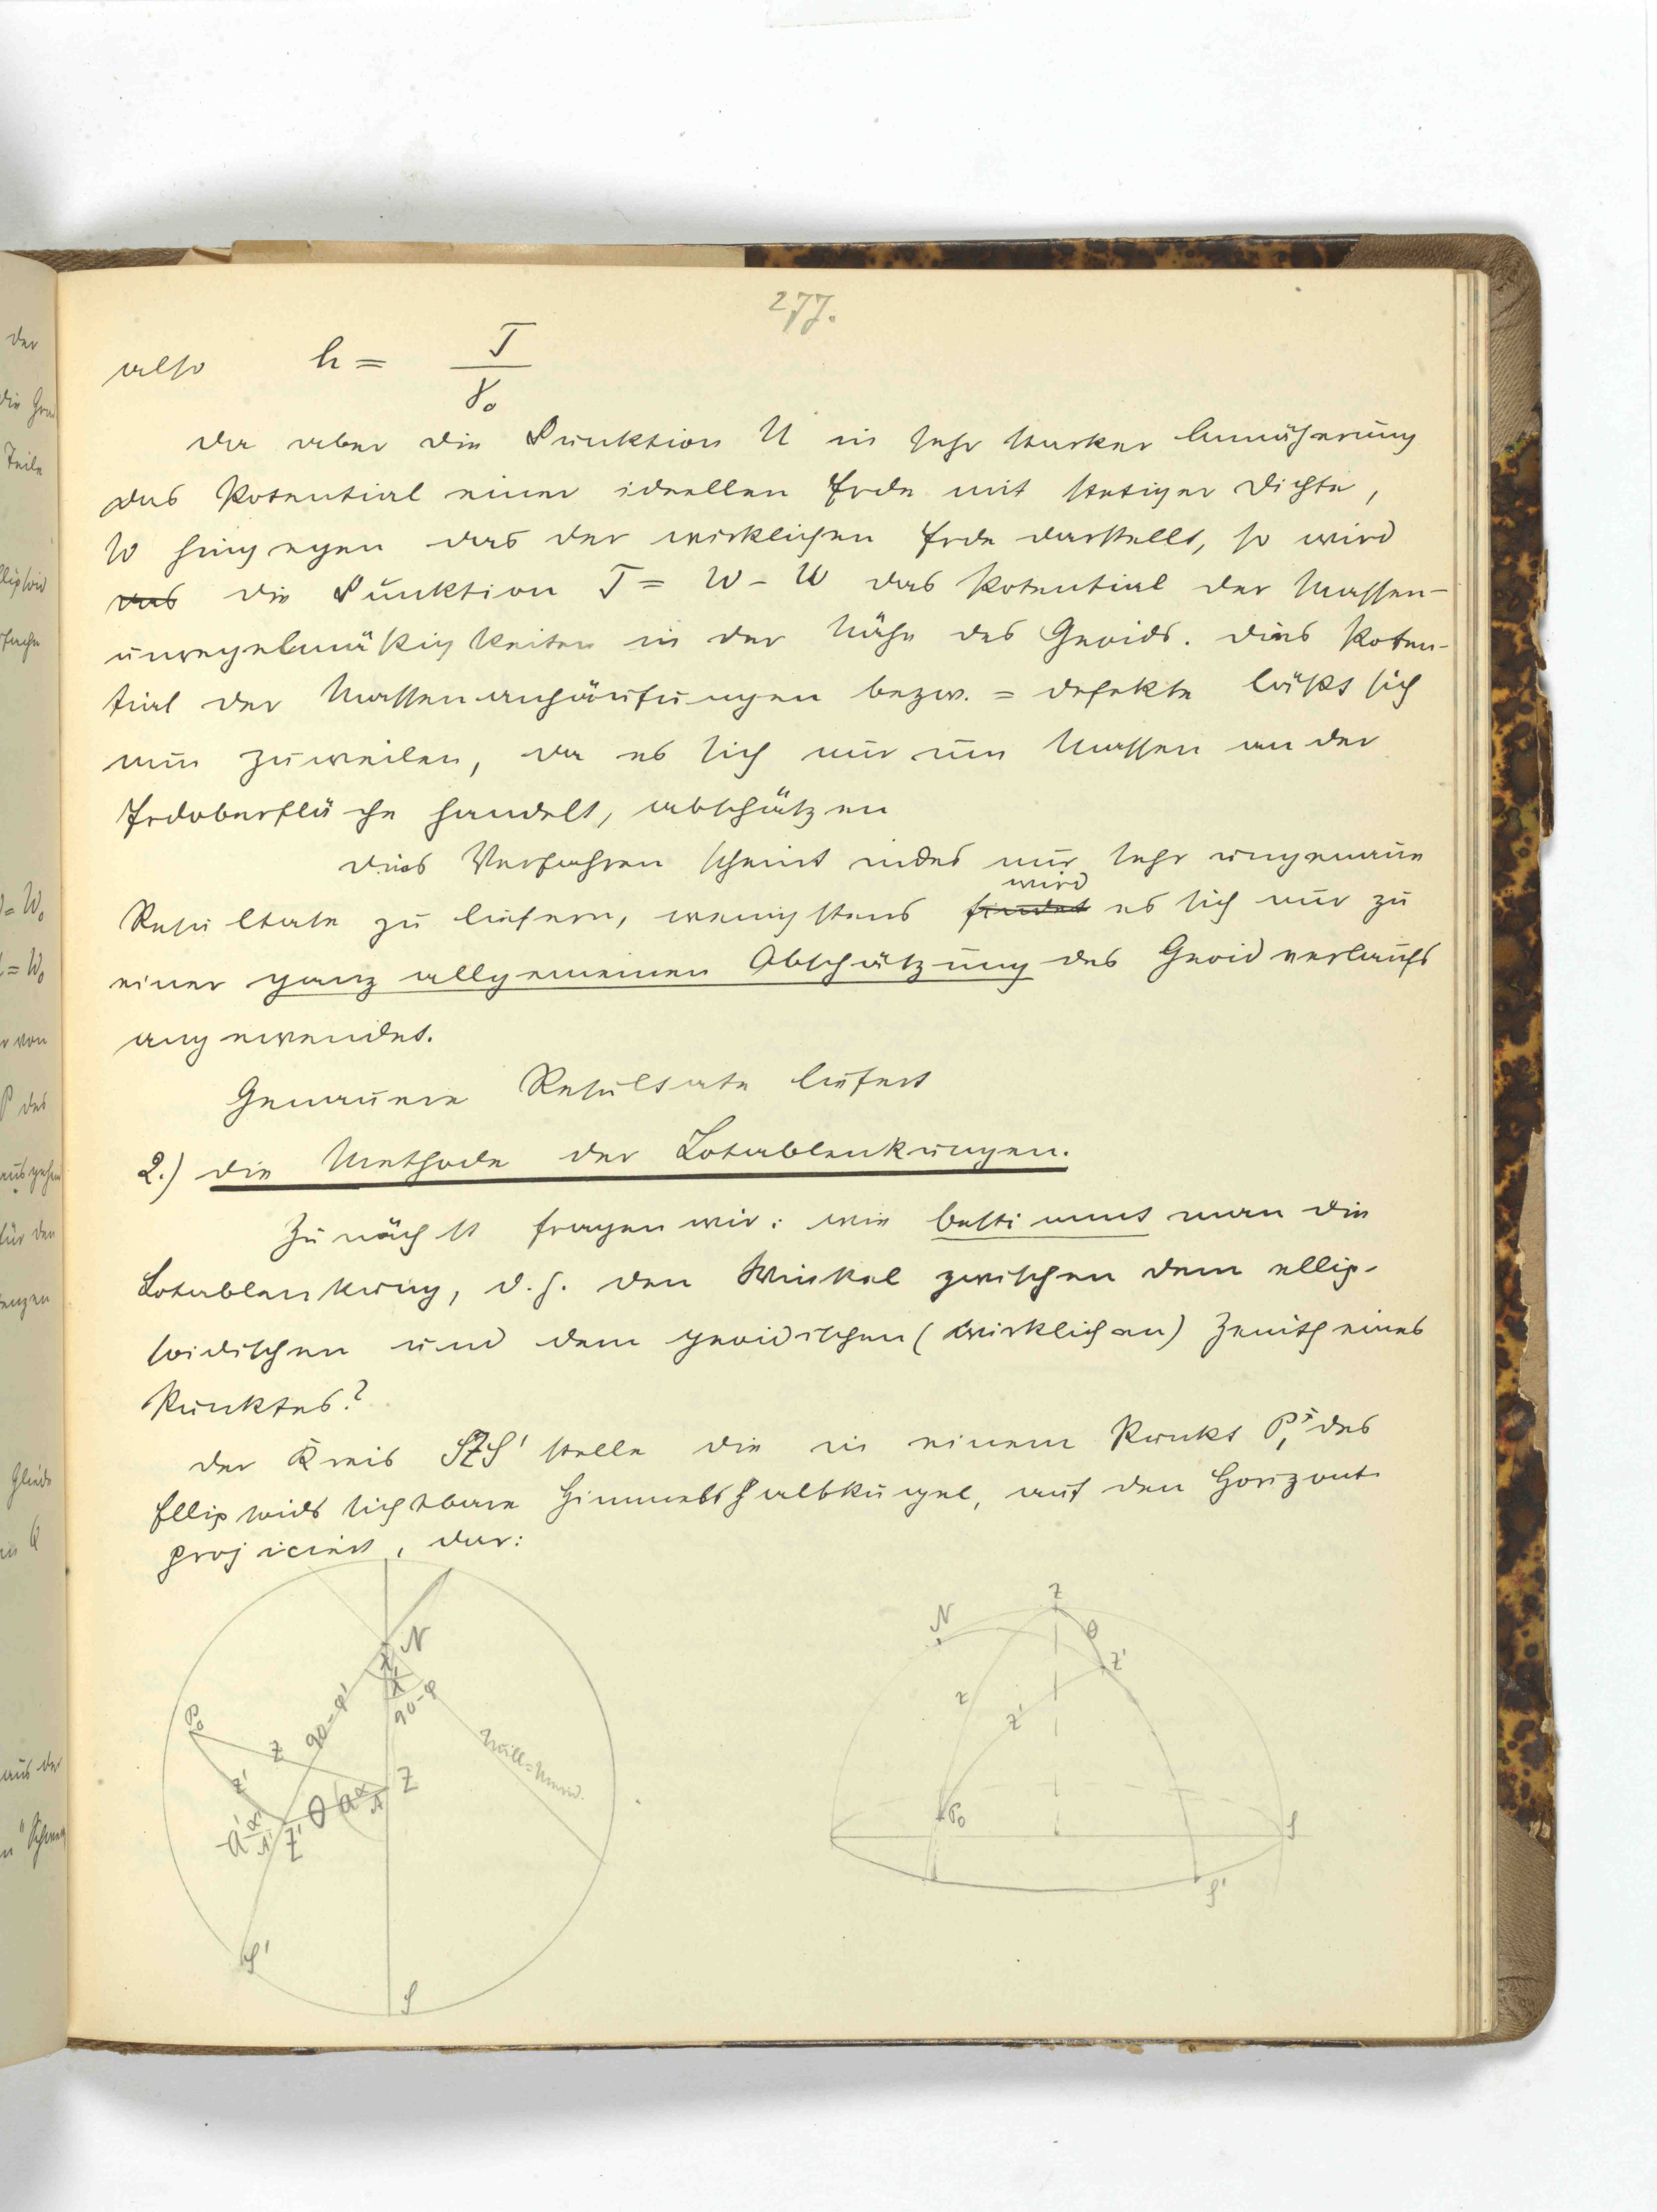 277.
also h = T / γ₀
da aber die Funktion U in sehr starker Annäherung
das Potential einer ideellen Erde mit stetiger Dichte,
W hingegen das der wirklichen Erde darstellt, so wird
das die Funktion T = W - U das Potential der Massen-
unregelmäßigkeiten in der Nähe des Geoids. Dies Poten-
tial der Massenanhäufungen bezw. = defekte läßt sich
nun zuweilen, da es sich nur um Massen an der
Erdoberfläche handelt, abschätzen
Dies Verfahren scheint indes nur sehr ungenaue
wird
Resultate zu liefern, wenigstens findet es sich nur zu
einer ganz allgemeinen Abschätzung des Geoidverlaufs
angewendet.
Genauere Resultate liefert
2.) die Methode der Lotablenkungen.
Zunächst fragen wir: wie bestimmt man die
Lotablenkung, d.h. den Winkel zwischen dem ellip-
soidischen und dem geoidischen (wirklichen) Zenith eines
Punktes?
Der Kreis SZS' stelle die in einem Punkt P₁ des
Ellipsoids sichtbare Himmelshalbkugel, auf den Horizont
projiciert, dar:
N
λ'
λ
90-φ'
90-φ
P₀
z
z'
Null=Merid.
Z
Θ
a α
A
a' α'
A'
Z'
S'
S
N
Z
Θ
Z'
z
z'
P₀
S
S'
der
die
Teile
= W₀
= W₀
von
P des
für den
aus der